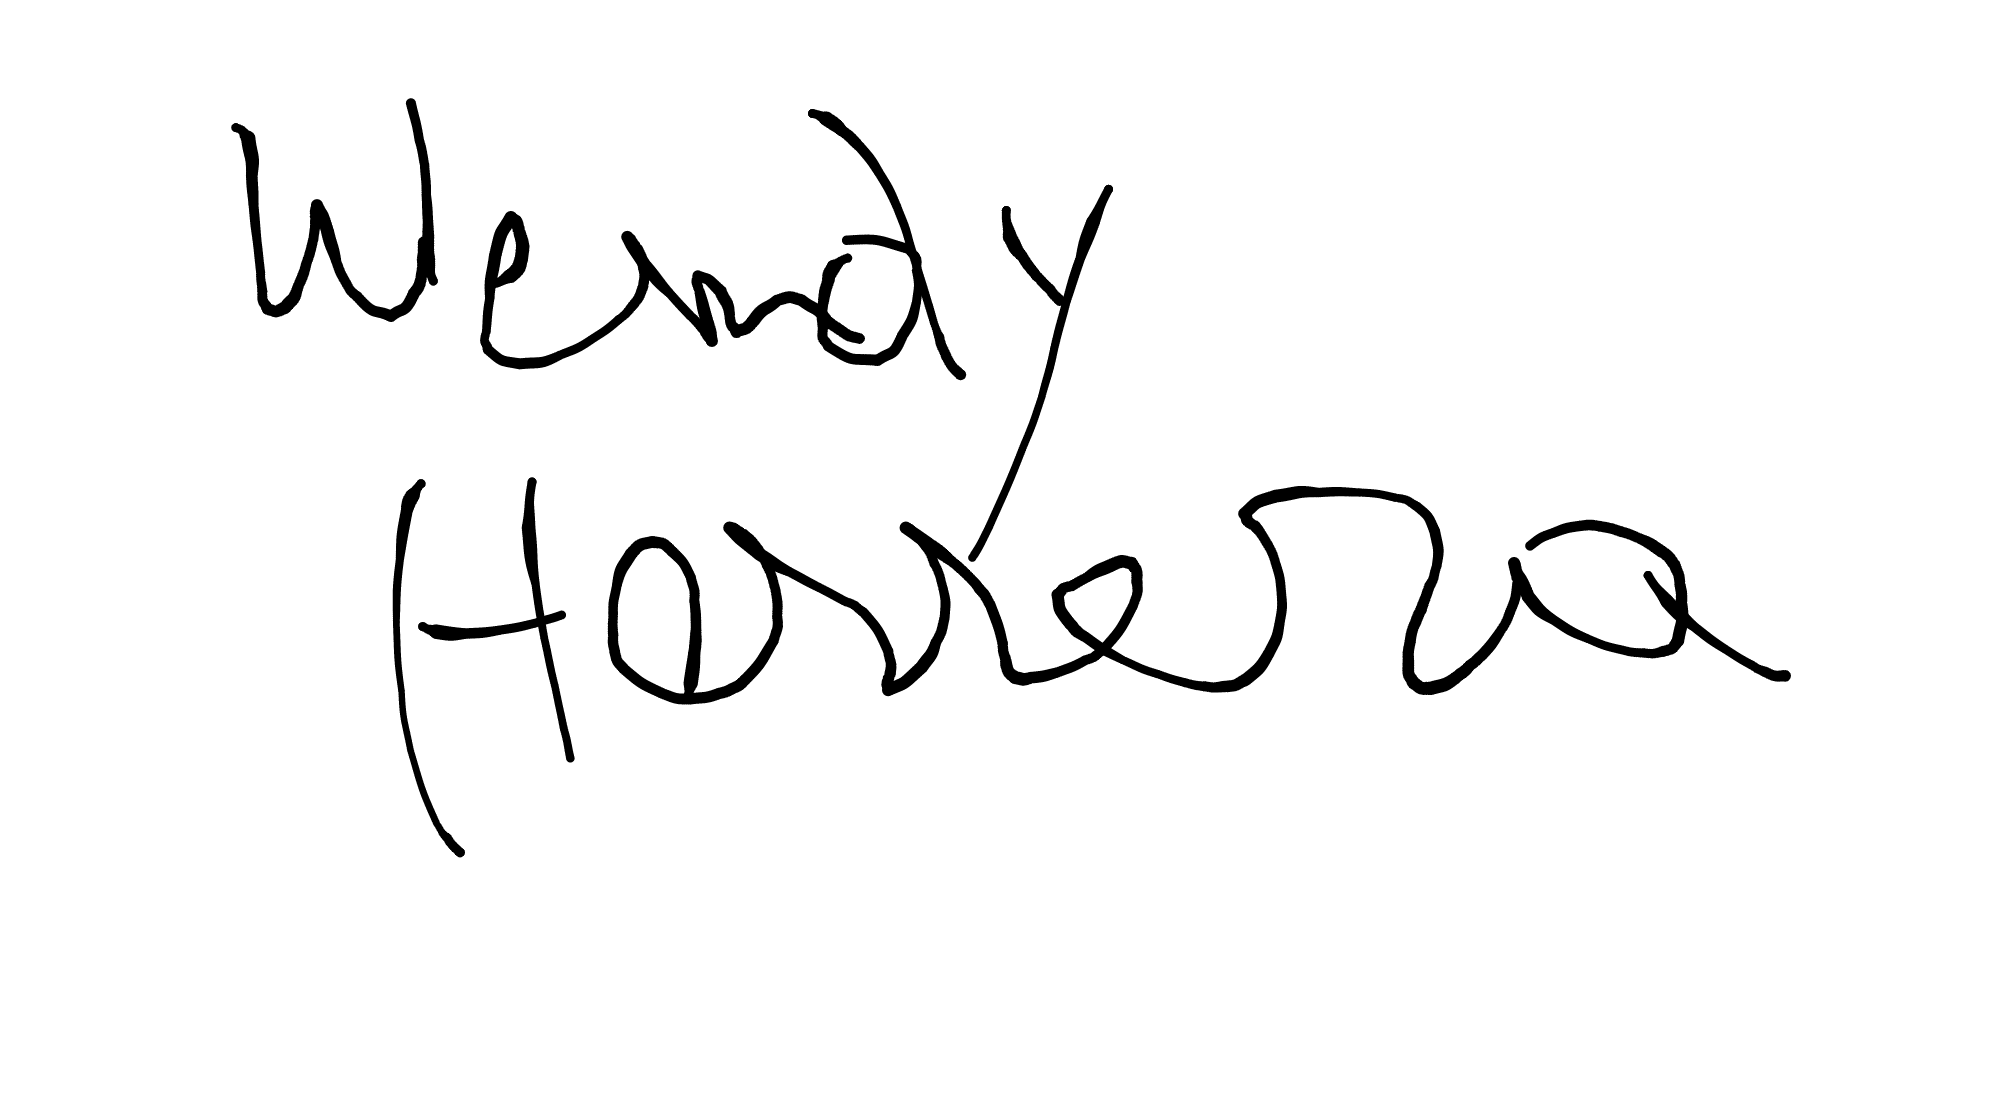 Wendy
Harrera